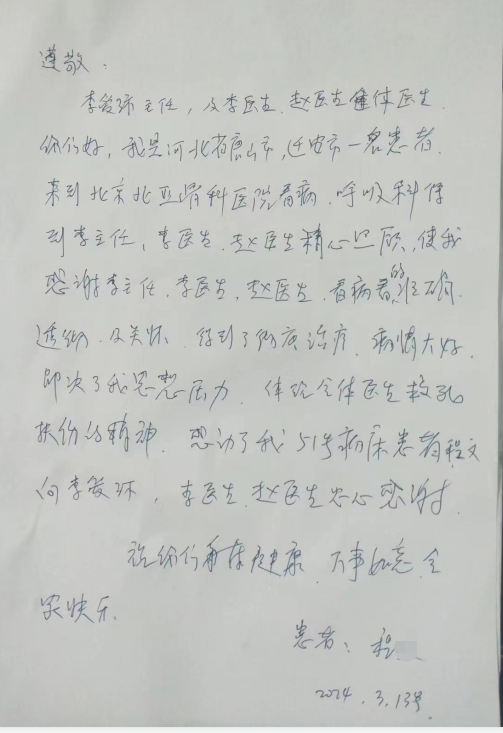 遵敬:
李爱环主任,及李医生.赵医生全体医生.
你们好,我是河北省唐山市,迁安市一名患者.
来到北京北亚骨科医院看病.呼吸科得
到李主任,李医生.赵医生精心照顾,使我
感谢李主任,李医生,赵医生.看病看的准确.
透彻.及关怀.得到了彻底治疗.病情大好.
解决了我思想压力.体现全体医生救死
扶伤的精神.感动了我51号病床患者程文
向李爱环,李医生.赵医生忠心感谢.
祝你们身体健康.万事如意.全
家快乐.
患者:程
2024.3.13号